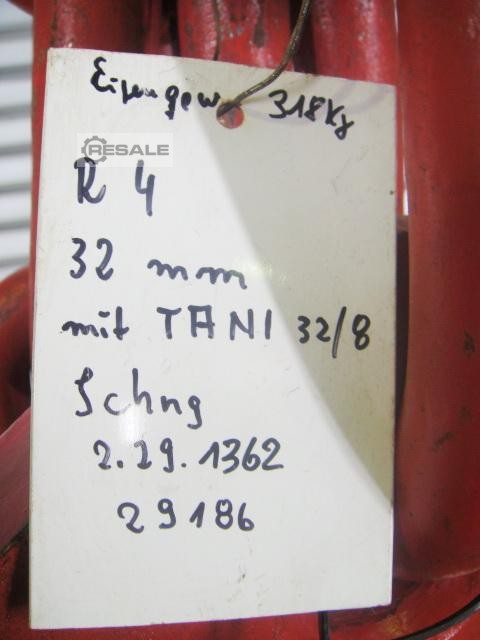 Eigengew 318Kg
RESALE
R 4
32 mm
mit TANI 32/8
Schng
2.29.1362
29186